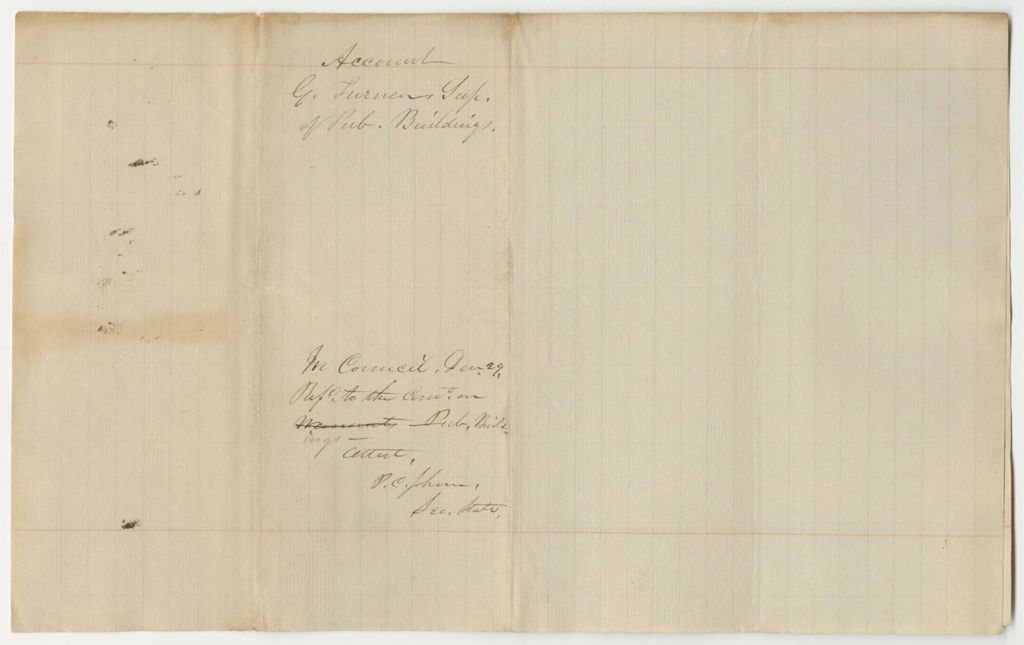 Account
G. Turner, Sup.
of Pub. Buildings.
In Council, Dec. 29,
Ref'd. to the Com'e. on
Warrants Pub. Build-
ings—
Attest,
P. C. Johnson,
Sec. State.